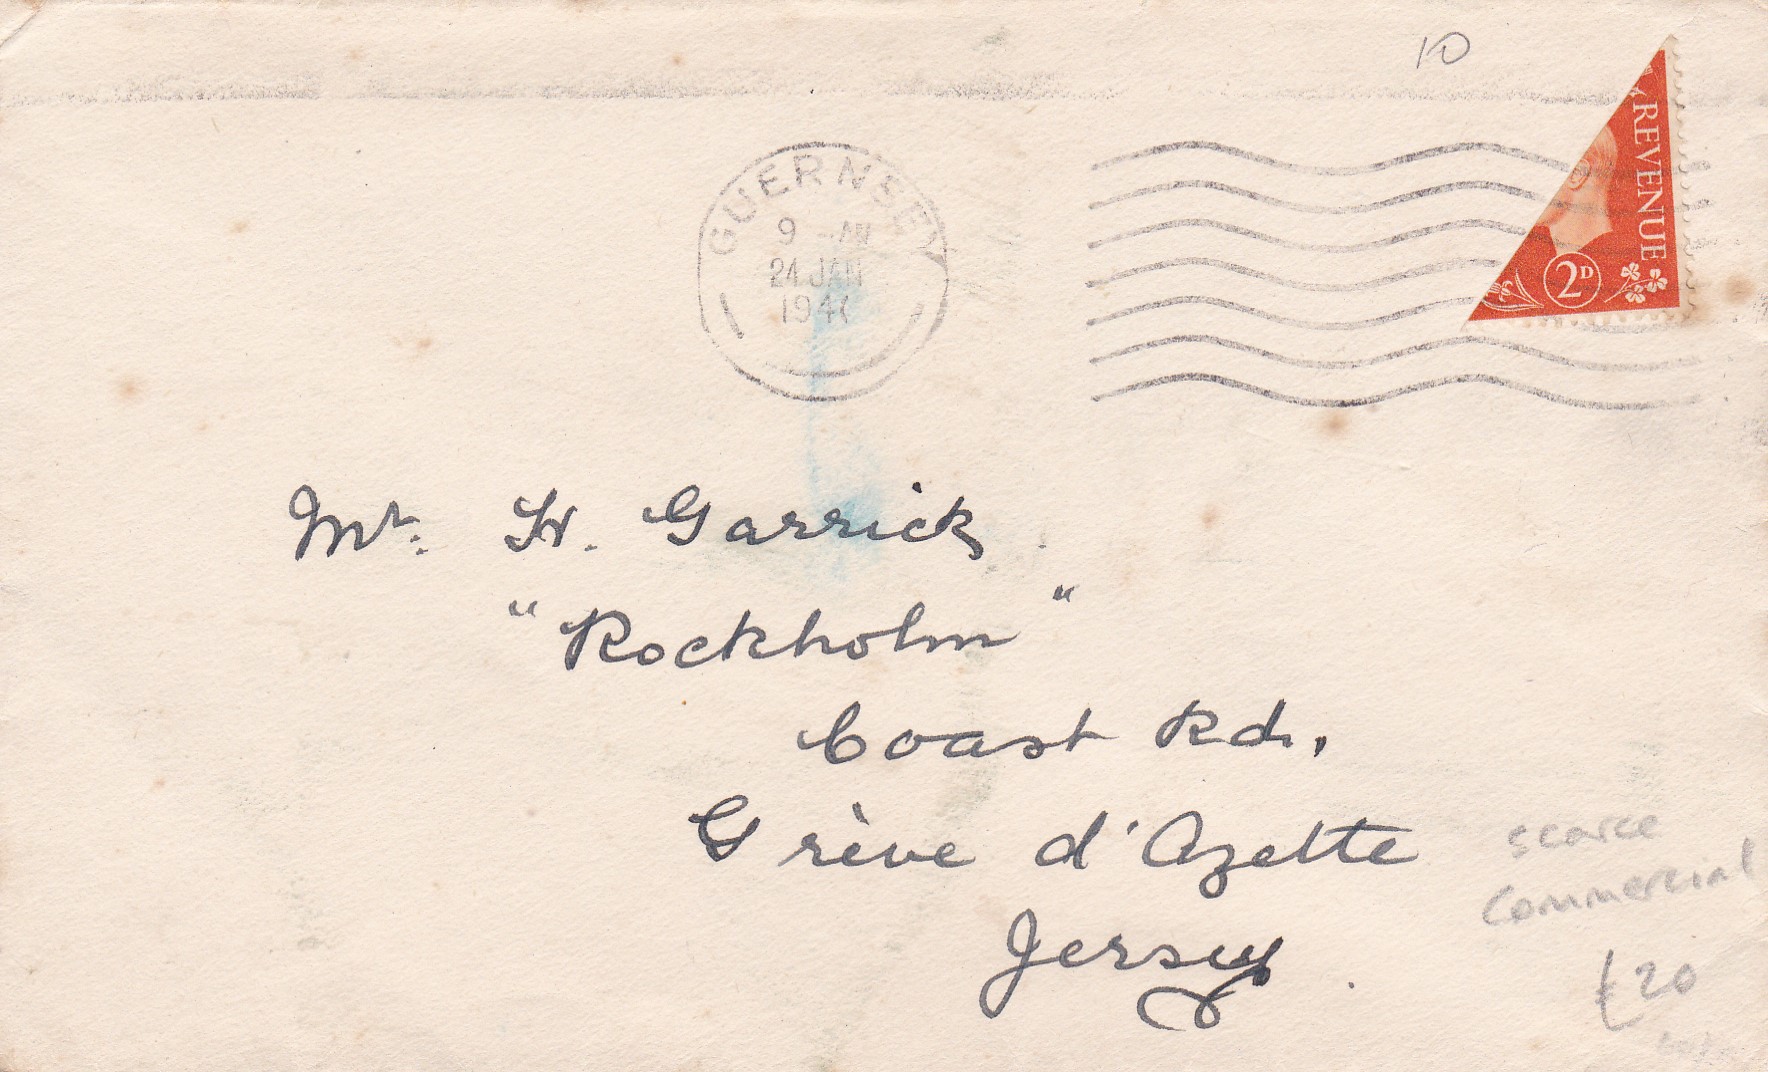 10
REVENUE
2D
GUERNSEY
9 - AM
24 JAN
194
Mr. H. Garrick
"Rockholm"
Coast Rd.,
Grève d'Azette
Jersey.
scarce
commercial
£20